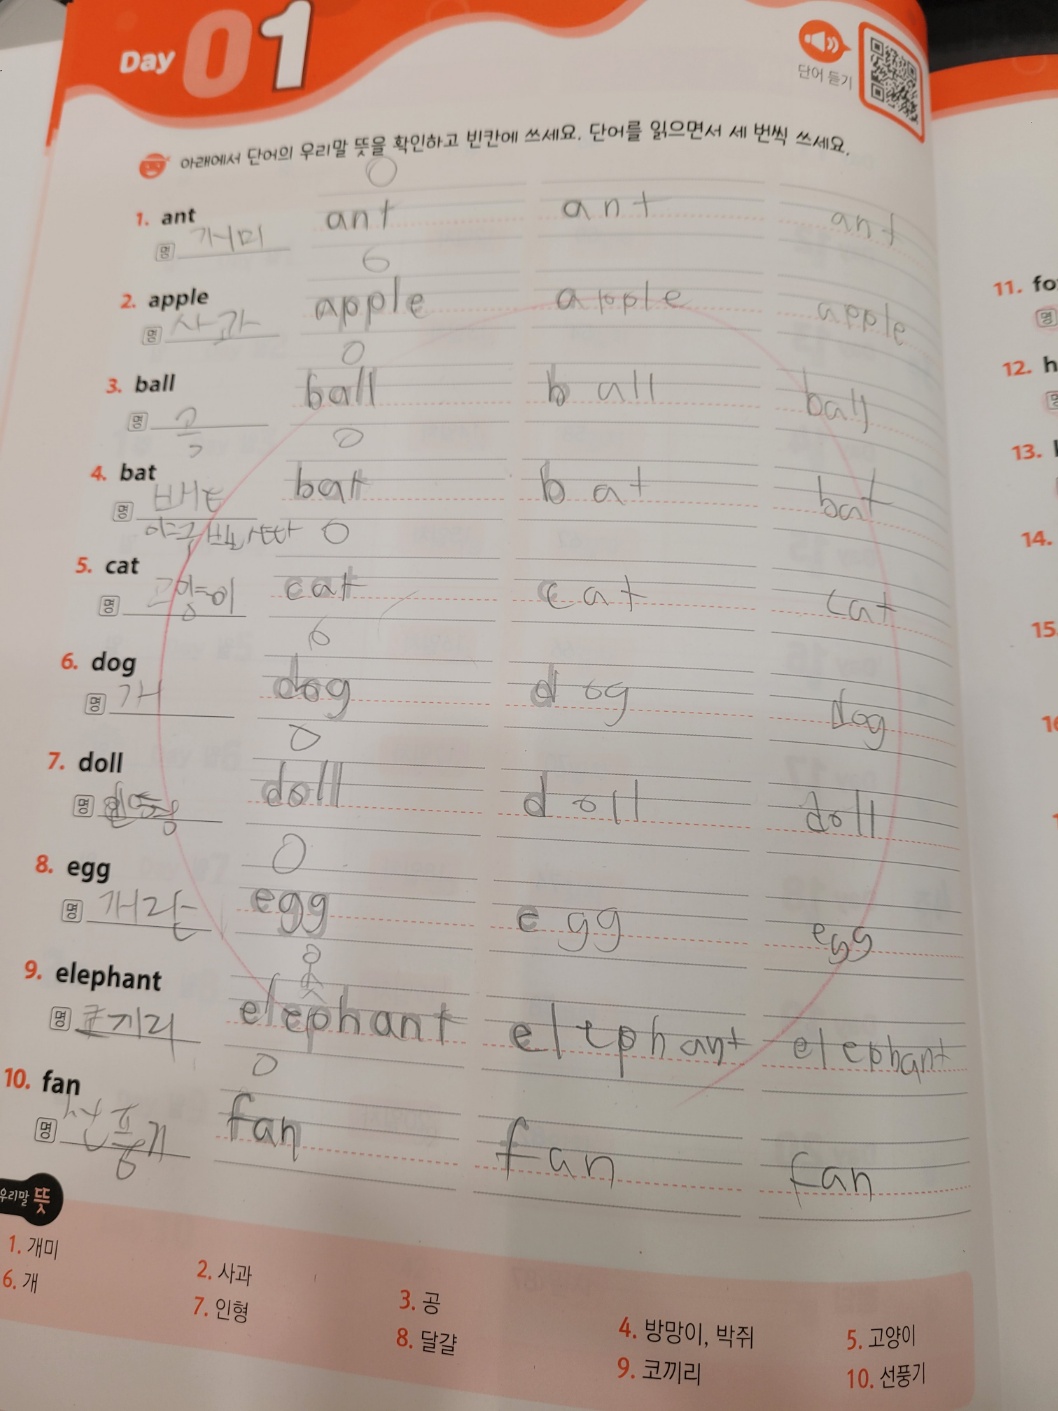 Day 01
단어 듣기
아래에서 단어의 우리말 뜻을 확인하고 빈칸에 쓰세요. 단어를 읽으면서 세 번씩 쓰세요.
1. ant
명 개미 ant ant ant
2. apple
명 사과 apple apple apple
3. ball
명 공 ball ball ball
4. bat
명 배트 bat bat bat
야구
5. cat
명 고양이 cat cat cat
6. dog
명 개 dog dog dog
7. doll
명 doll doll doll
8. egg
명 egg egg egg
9. elephant
명 코끼리 elephant elephant elephant
10. fan
명 선풍기 fan fan fan
우리말 뜻
1. 개미 2. 사과 3. 공 4. 방망이, 박쥐 5. 고양이
6. 개 7. 인형 8. 달걀 9. 코끼리 10. 선풍기
11. fo
명
12. h
13.
14.
15.